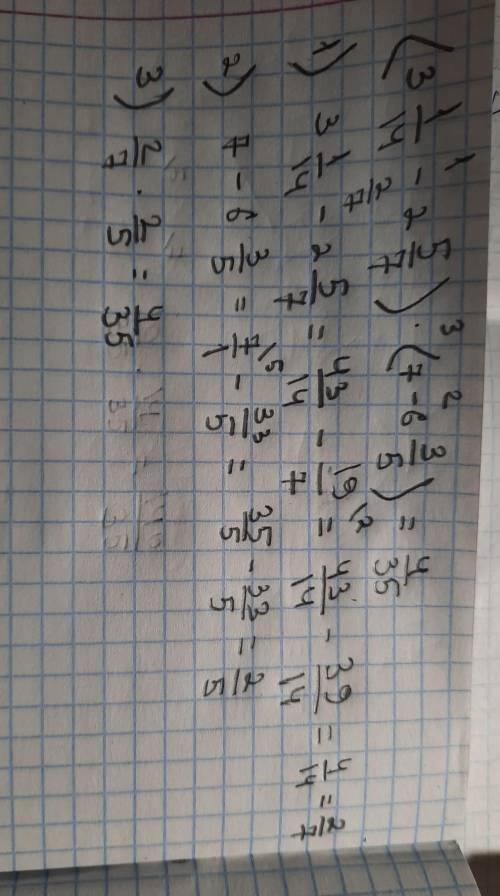 1 3 2
(3 1/14 - 2 5/7) · (7 - 6 3/5) = 4/35
2/7
1) 3 1/14 - 2 5/7 = 43/14 - 19/7 \2 = 43/14 - 39/14 = 4/14 = 2/7
2) 7 - 6 3/5 = 7/1 \5 - 33/5 = 35/5 - 33/5 = 2/5
3) 2/7 · 2/5 = 4/35